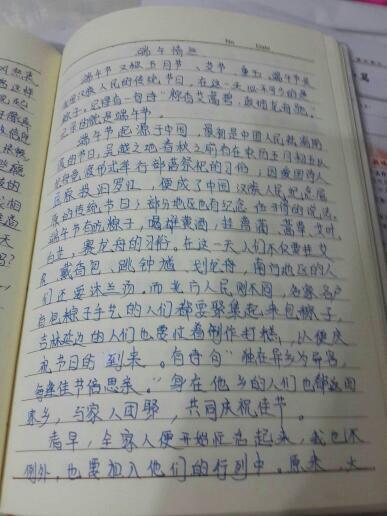 No. Date
端午情思
端午节又称五月节、艾节、重午。端午节是
我国汉族人民的传统节日,在这一天必不可少的是
粽子。记得有一句诗"粽有艾蒿
记录的就是端午节。
端午节起源于中国,最初是中国人民祛病防
疫的节日,吴越之地春秋之前有在农历五月初五以
龙舟竞渡形式举行部落祭祀的习俗,因爱国诗人
屈原投汨罗江,便成了中国汉族人民纪念屈
原的传统节日;部分地区也有纪念伍子胥的说法。
端午节有吃粽子,喝雄黄酒,挂菖蒲、蒿草、艾叶、
白芷,赛龙舟的习俗。在这一天人们不仅要插艾
蒿、戴香包、跳钟馗、划龙舟,南方地区的人
们还要沐兰汤。而北方人民则不同,各家各户
自包粽子手艺的人们都要聚集起来包粽子,
吉林延边的人们也要忙着制作打糕,以便庆
祝节日的到来。有诗句"独在异乡为异客,
每逢佳节倍思亲。"身在他乡的人们也都返回
家乡,与家人团聚,共同庆祝佳节。
清早,全家人便开始忙活起来,我也不
例外,也要加入他们的行列中。原来,大